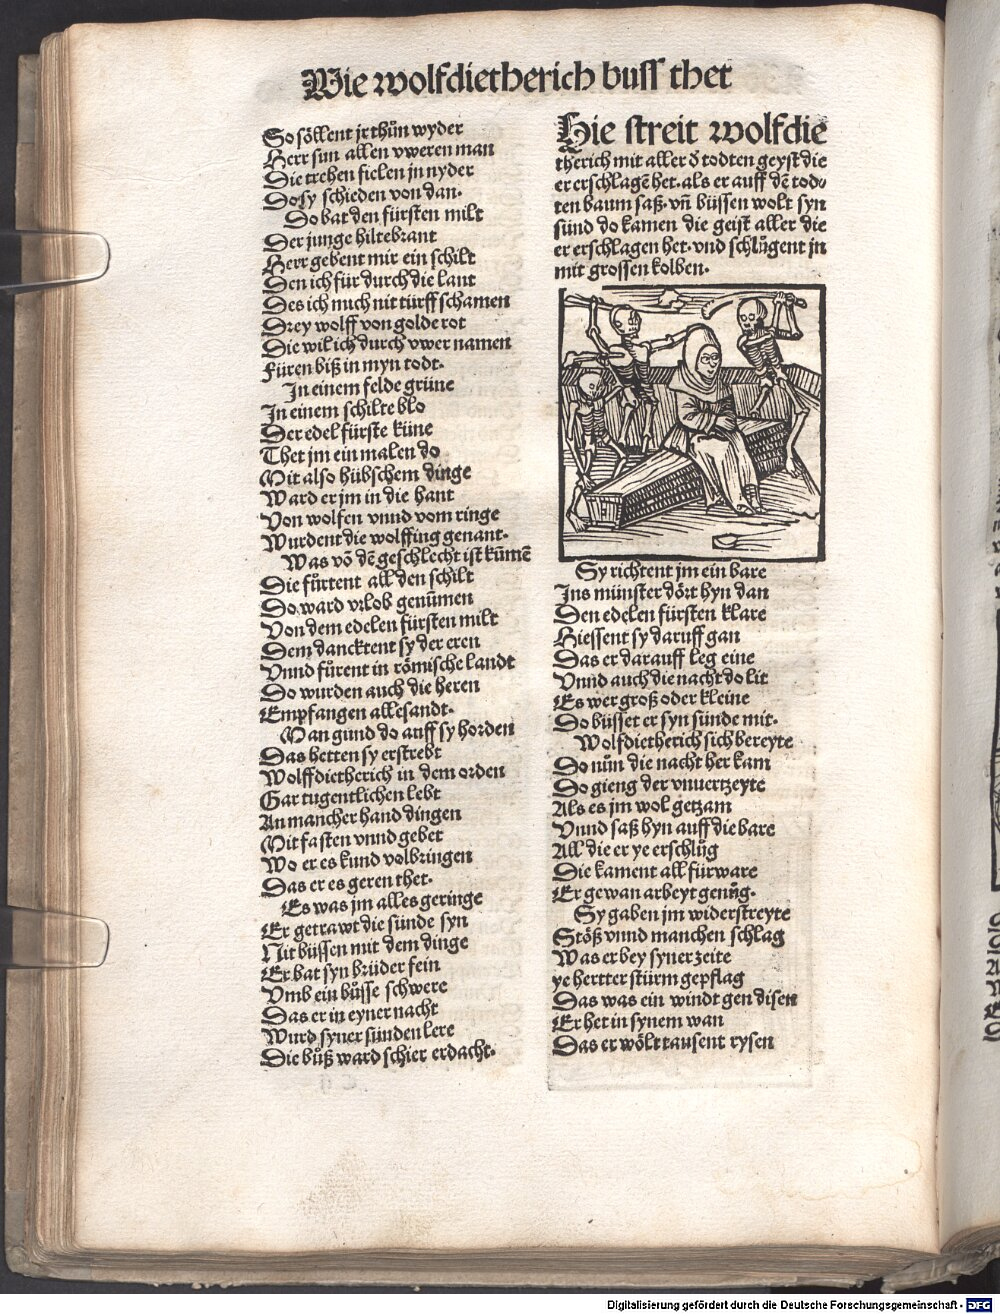 Wie wolfdietherich buſſ thet
So söllent jr thůn wyder
Herr sun allen vweren man
Die trehen fielen jn nyder
Do sy schieden von dan.
Do bat den fürsten milt
Der junge hiltebrant
Herr gebent mir ein schilt
Den ich für durch die lant
Des ich mich nit türff schamen
Drey wolff von golde rot
Die wil ich durch vwer namen
Füren biß in myn todt.
In einem felde grüne
In einem schilte blo
Der edel fürste küne
Thet jm ein malen do
Mit also hübschem dinge
Ward er jm in die hant
Von wolfen vnnd vom ringe
Wurdent die wolffing genant.
Was vō dē geschlecht ist kūmē
Die fürtent all den schilt
Do ward vrlob genūmen
Von dem edelen fürsten milt
Dem dancktent sy der eren
Vnnd fůrent in römische landt
Do wurden auch die heren
Empfangen allesandt.
Man gund do auff sy horden
Das hetten sy erstrebt
Wolffdietherich in dem orden
Gar tugentlichen lebt
An mancher hand dingen
Mit fasten vnnd gebet
Wo er es kund volbringen
Das er es geren thet.
Es was jm alles geringe
Er getrawt die sünde syn
Nit büssen mit dem dinge
Er bat syn brüder fein
Vmb ein bůsse schwere
Das er in eyner nacht
Wurd syner sünden lere
Die bůß ward schier erdacht.
Hie streit wolfdie
therich mit aller d̄ todten geyst die
er erschlagē het. als er auff dē tod⸗
ten baum saß. vn̄ büssen wolt syn
sünd do kamen die geist aller die
er erschlagen het. vnd schlůgent jn
mit grossen kolben.
Sy richtent jm ein bare
Ins münster dört hyn dan
Den edelen fürsten klare
Hiessent sy daruff gan
Das er darauff leg eine
Vnnd auch die nacht do lit
Es wer groß oder kleine
Do büsset er syn sünde mit.
Wolfdietherich sich bereyte
Do nůn die nacht her kam
Do gieng der vnuertzeyte
Als es jm wol getzam
Vnnd saß hyn auff die bare
All die er ye erschlůg
Die kament all fürware
Er gewan arbeyt genůg.
Sy gaben jm widerstreyte
Stöß vnnd manchen schlag
Was er bey syner zeite
ye hertter stürm gepflag
Das was ein windt gen disen
Er het in synem wan
Das er wölt tausent rysen
Digitalisierung gefördert durch die Deutsche Forschungsgemeinschaft - DFG